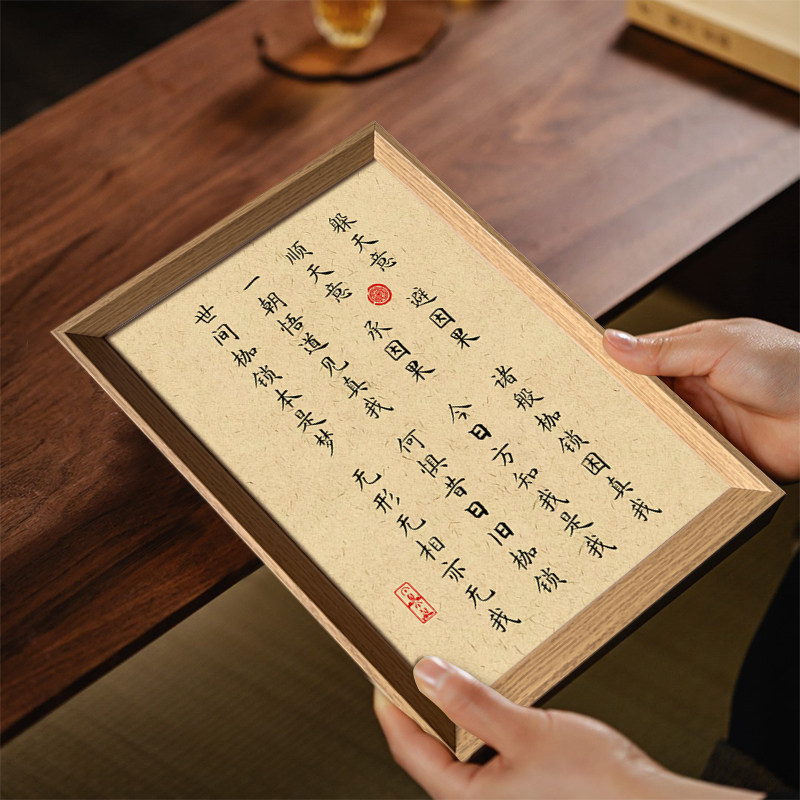 躲天意 避因果 诸般枷锁困真我
顺天意 承因果 今日方知我是我
一朝悟道见真我 何惧昔日旧枷锁
世间枷锁本是梦 无形无相亦无我